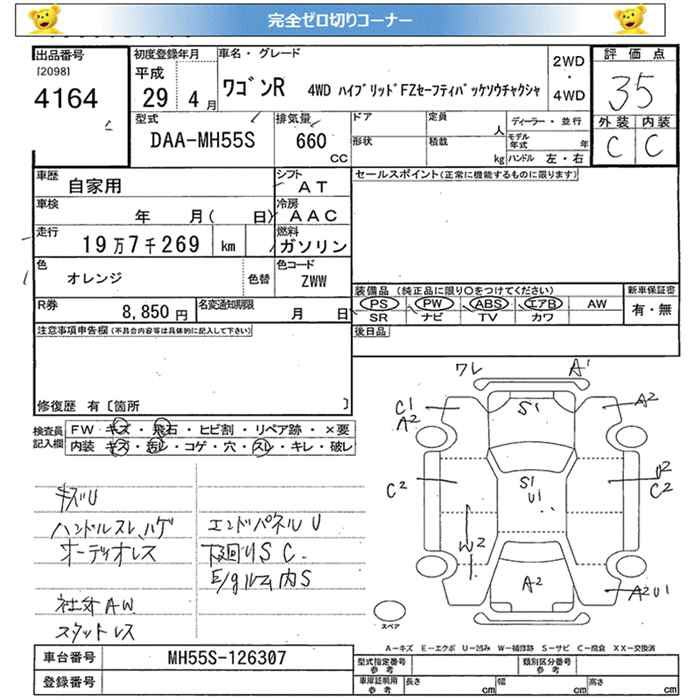 完全ゼロ切りコーナー
出品番号 初度登録年月 車名・グレード 2WD・4WD 評価点
[2098] 平成
4164 29 4月 ワゴンR 4WD ハイブリッドFZセーフティパッケソウチャクシャ 35
型式 排気量 ドア 定員 人 ディーラー・並行 外装 内装
DAA-MH55S 660 CC 形状 積載 kg モデル年式 年 C C
ハンドル 左・右
車歴 自家用 シフト AT セールスポイント(正常に機能するものに限ります)
車検 年 月( 日) 冷房 AAC
走行 19万7千269 km 燃料 ガソリン
色 オレンジ 色替 色コード ZWW
装備品(純正品に限り○をつけてください) 新車保証書
R券 8,850円 名変通知期限 月 日 PS PW ABS エアB AW 有・無
SR ナビ TV カワ
注意事項申告欄(不具合内容等は具体的に記入して下さい) 後日品
修復歴 有[箇所 ]
検査員記入欄 FW キズ・飛石・ヒビ割・リペア跡・×要
内装 キズ・汚レ・コゲ・穴・スレ・キレ・破レ
ワレ A1
C1 A2 S1 A2
C2 S1 U1 U2 C2
W2
A2 A2 U1
キズU
ハンドルスレ、ハゲ エンドパネルU
オーディオレス 下廻りSC.
E/gルーム内S
社外AW
スタットレス
スペア
A-キズ E-エクボ U-凹み W-補修跡 S-サビ C-腐食 XX-交換済
車台番号 MH55S-126307 型式指定番号 参考 類別区分番号 参考
登録番号 車庫証明用 参考 長さ cm 幅 cm 高さ cm